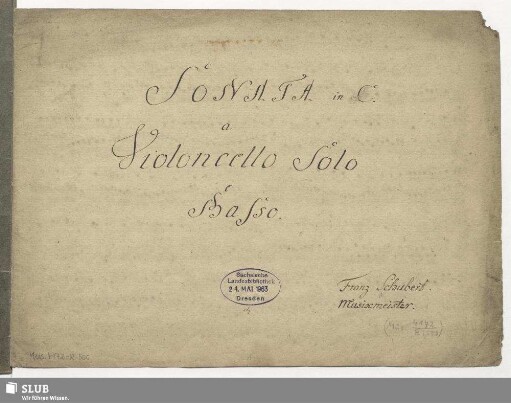 SONATA in C.
a
Violoncello Solo
Basso.
Sächsische
Landesbibliothek
24. MAI 1963
Dresden
Franz Schubert
Musicmeister.
SLUB
Wir führen Wissen.